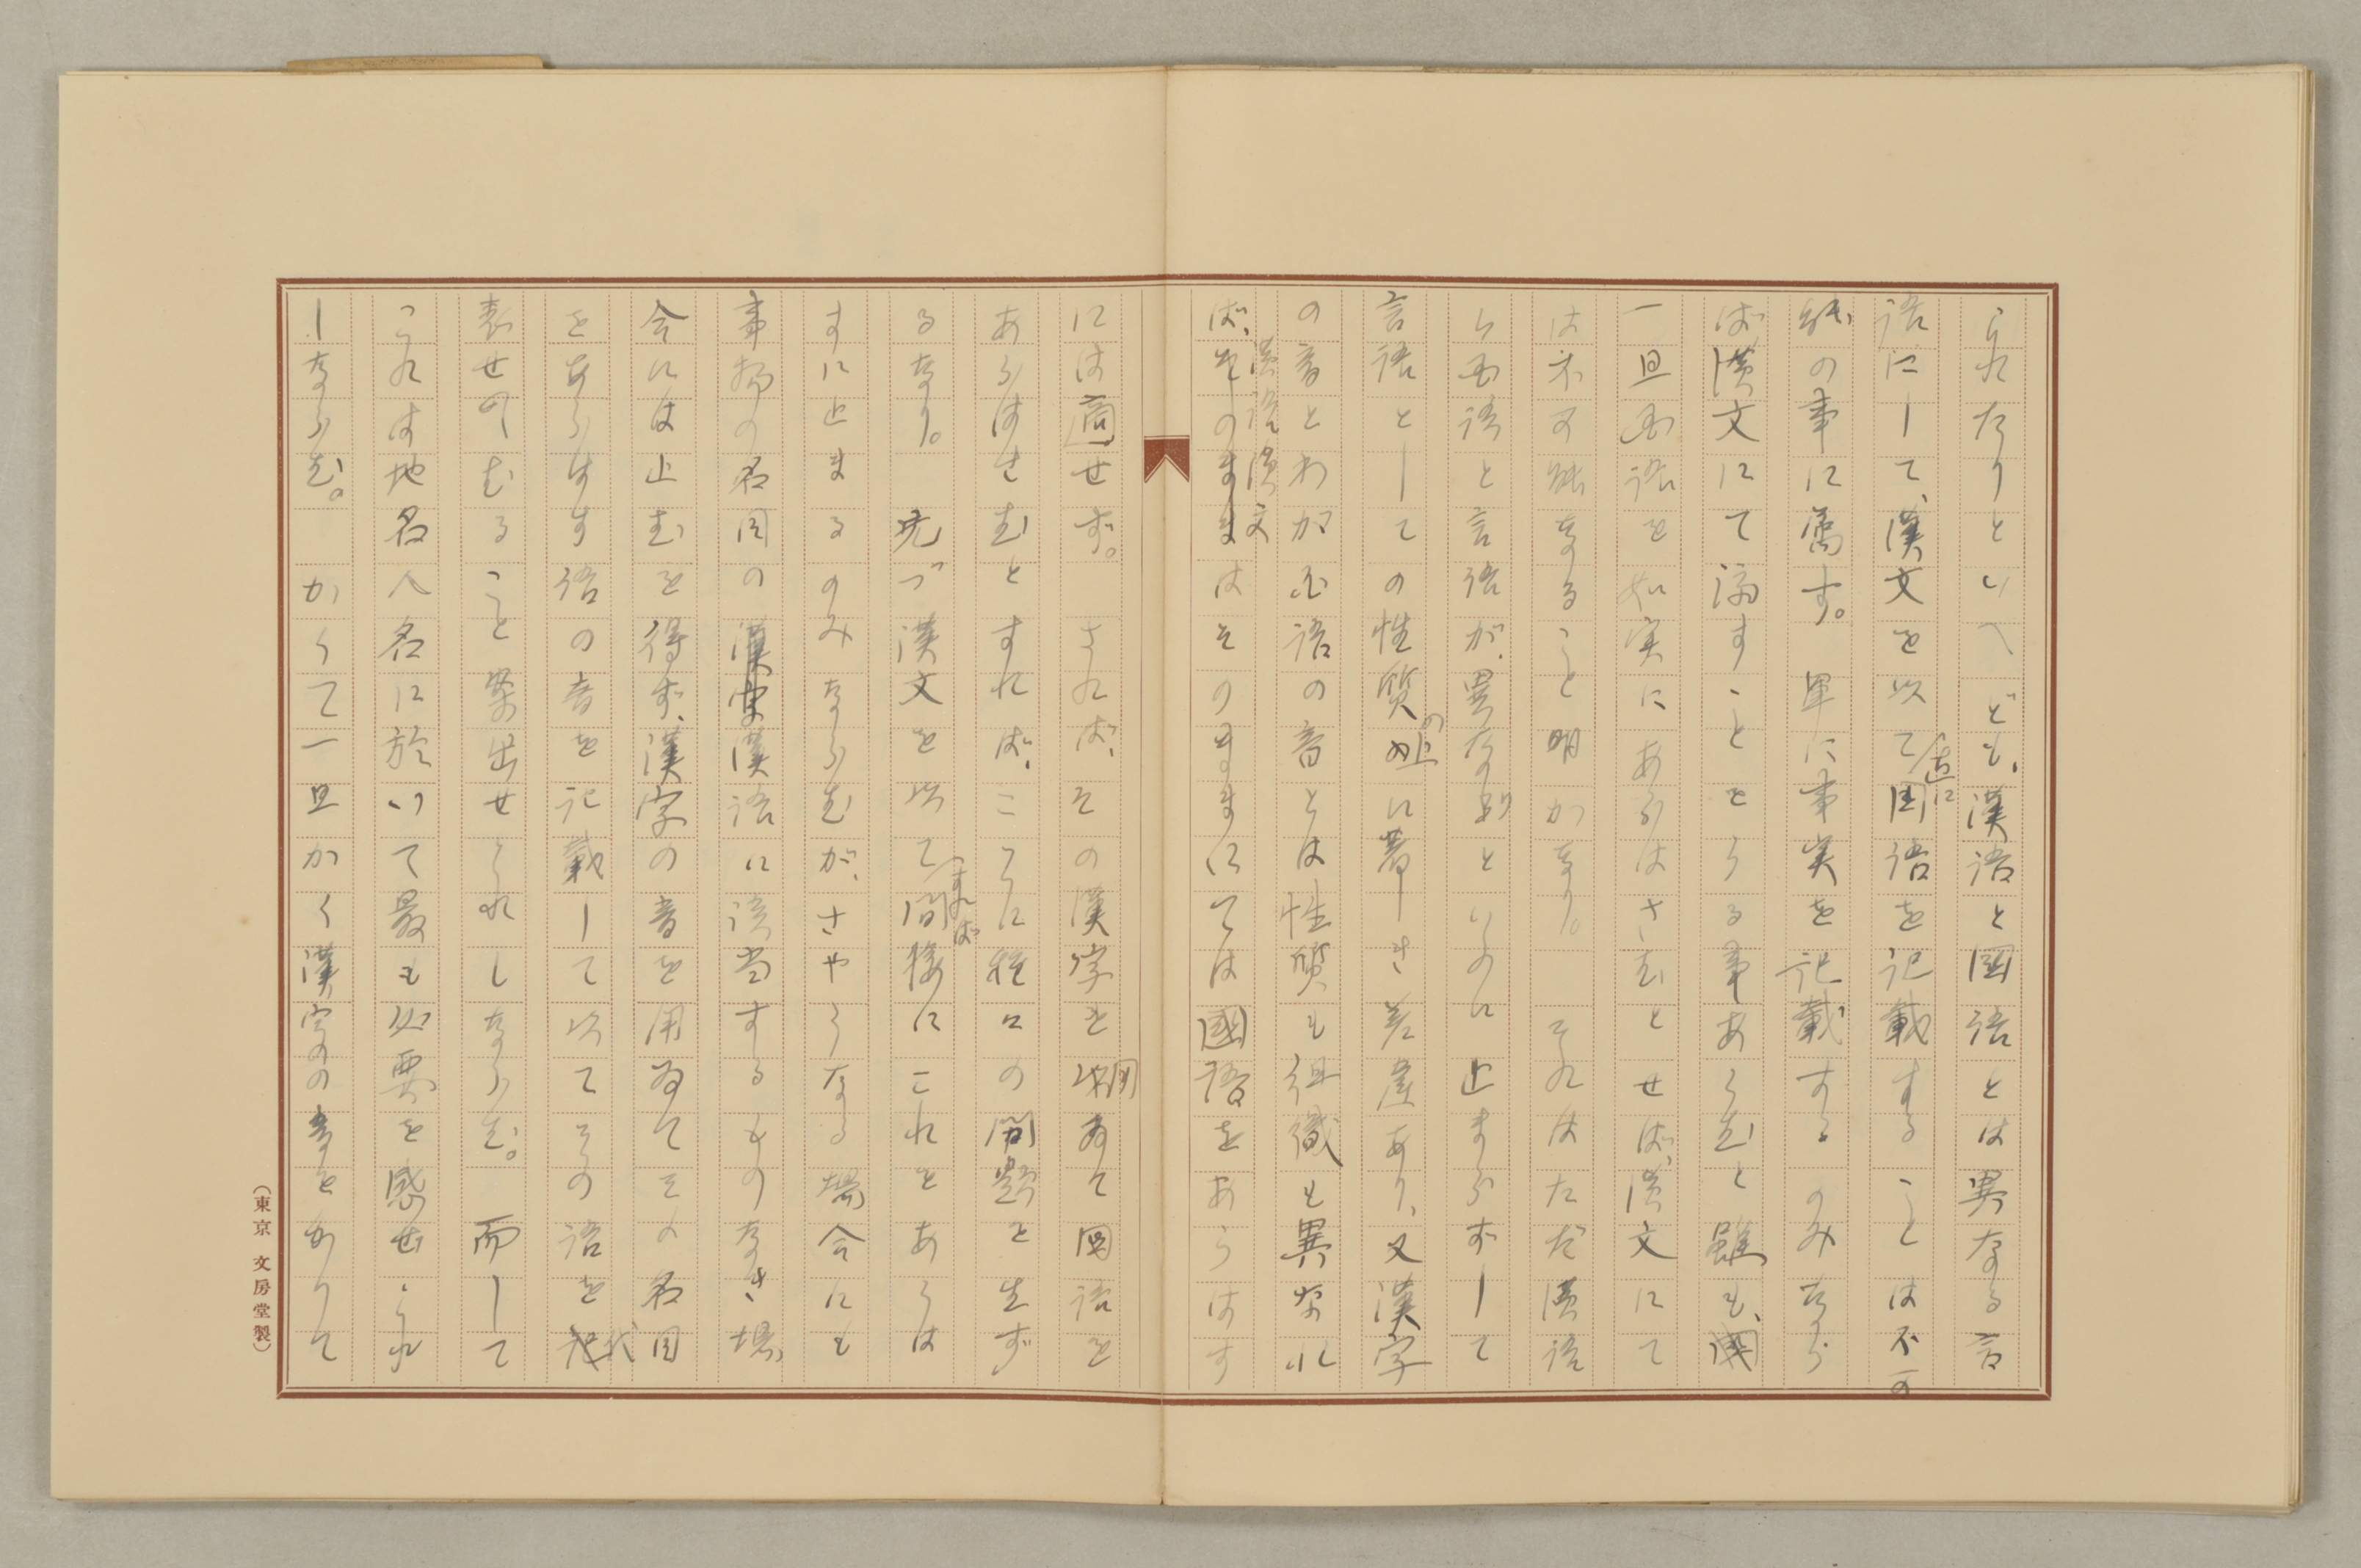 られたりといへども、漢語と国語とは異なる言
語にして、漢文を以て直に国語を記載することは不可
能の事に属す。単に事実を記載するのみなら
ば漢文にて済すことをうる事あらむと雖も、国
一旦国語を如実にあらはさむとせば、漢文にて
は不可能なること明かなり。それはただ漢語
と国語と言語が、異なりといふのに止まらずして
言語としての性質の上に著しき差異あり、又漢字
の音とわが国語の音とは性質も組織も異なれ
ば、漢語漢文そのままにては國語をあらはす
には適せず。されば、その漢字を用ゐて国語を
あらはさむとすれば、ここに種々の問題を生ず
るなり。先づ漢文を以てすれば間接にこれをあらは
すに止まるのみならむが、さやうなる場合にも
事物の名目の漢語に該当するものなき場
合には止むを得ず、漢字の音を用ゐてその名目
をあらはす語の音を記載して以てその語を代
表せしむること案出せられしならむ。而して
これは地名人名に於いて最も必要を感ぜられ
しならむ。かくて一旦かく漢字の音をかりて
（東京 文房堂製）